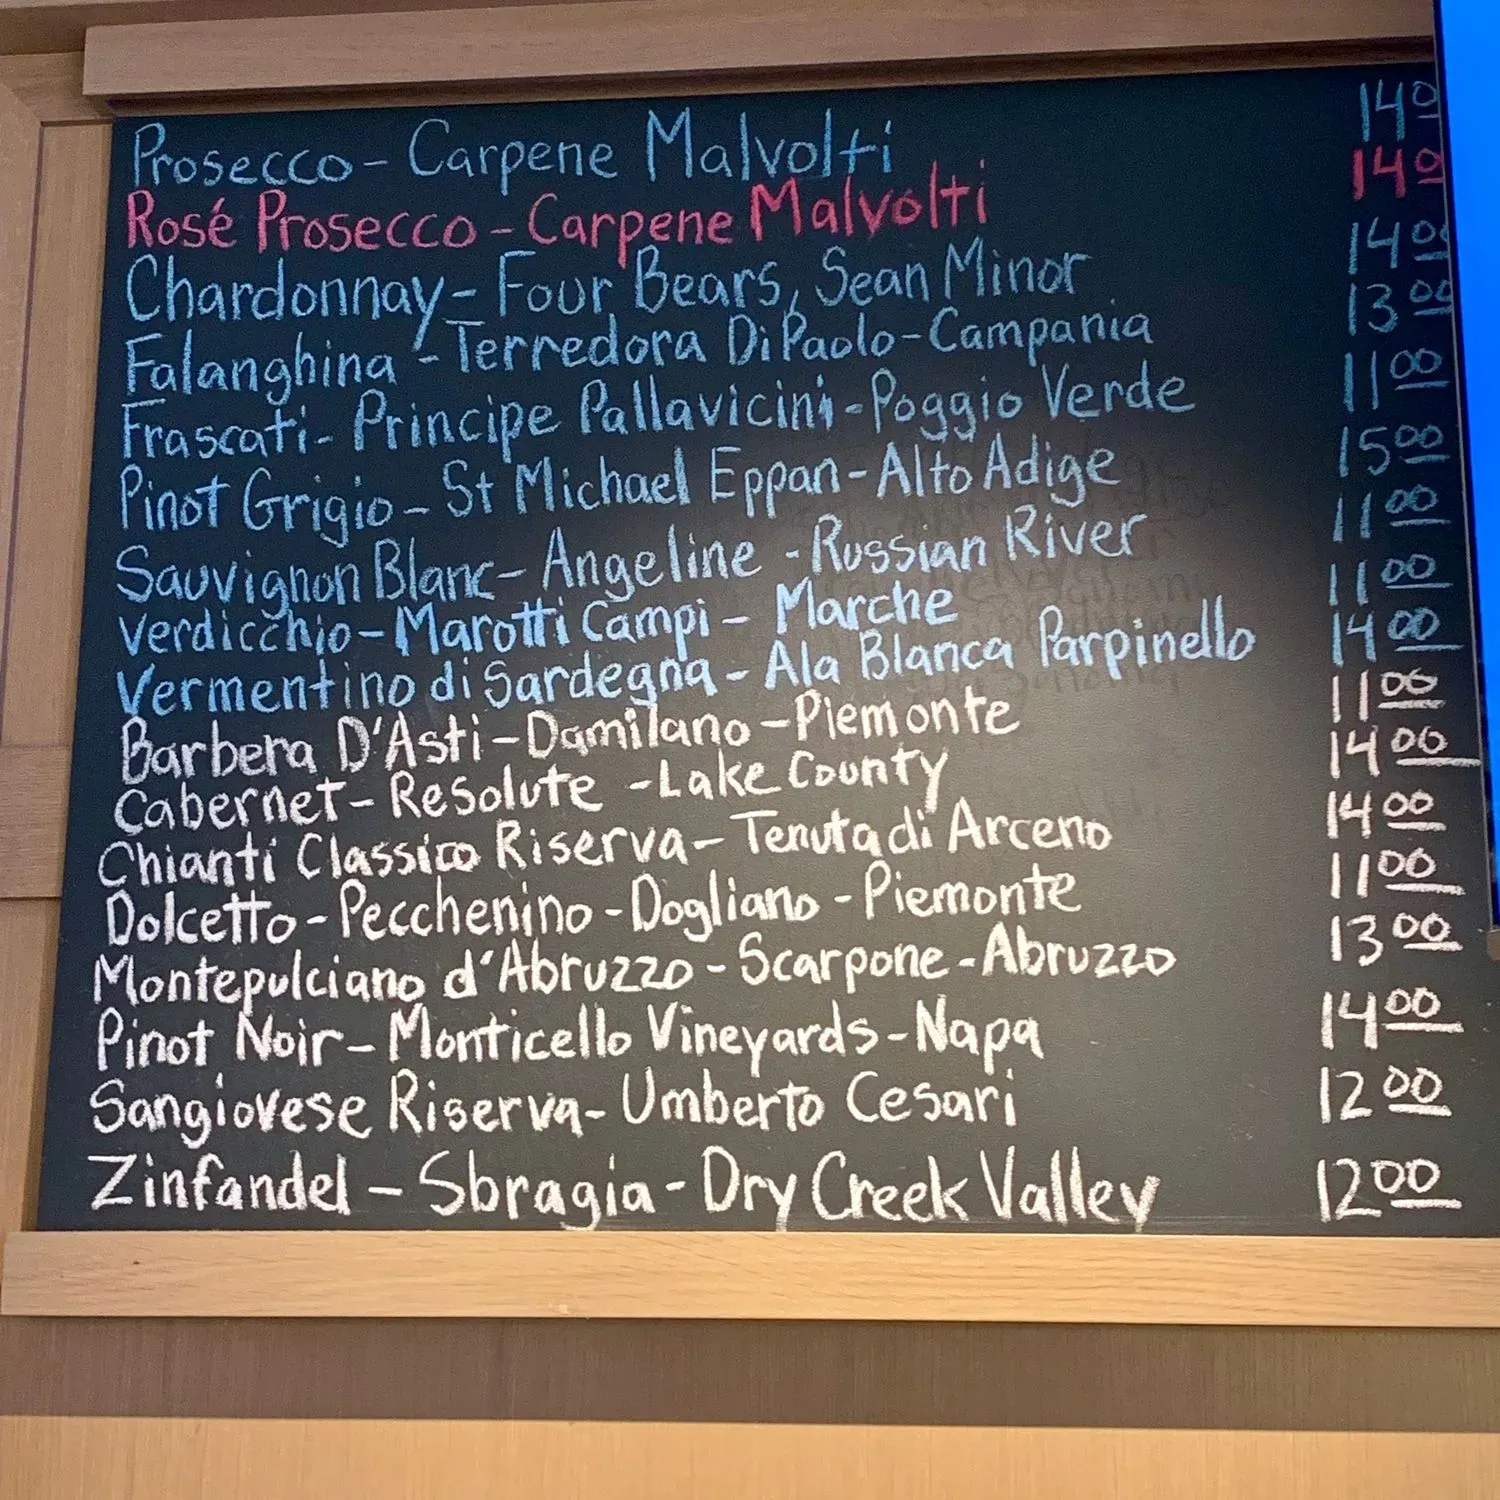 Prosecco - Carpene Malvolti 14 0
Rosé Prosecco - Carpene Malvolti 14 0
Chardonnay - Four Bears, Sean Minor 14 00
Falanghina - Terredora DiPaolo - Campania 13 00
Frascati - Principe Pallavicini - Poggio Verde 11 00
Pinot Grigio - St Michael Eppan - Alto Adige 15 00
Sauvignon Blanc - Angeline - Russian River 11 00
Verdicchio - Marotti Campi - Marche 11 00
Vermentino di Sardegna - Ala Blanca Parpinello 14 00
Barbera D'Asti - Damilano - Piemonte 11 00
Cabernet - Resolute - Lake County 14 00
Chianti Classico Riserva - Tenuta di Arceno 14 00
Dolcetto - Pecchenino - Dogliano - Piemonte 11 00
Montepulciano d'Abruzzo - Scarpone - Abruzzo 13 00
Pinot Noir - Monticello Vineyards - Napa 14 00
Sangiovese Riserva - Umberto Cesari 12 00
Zinfandel - Sbragia - Dry Creek Valley 12 00